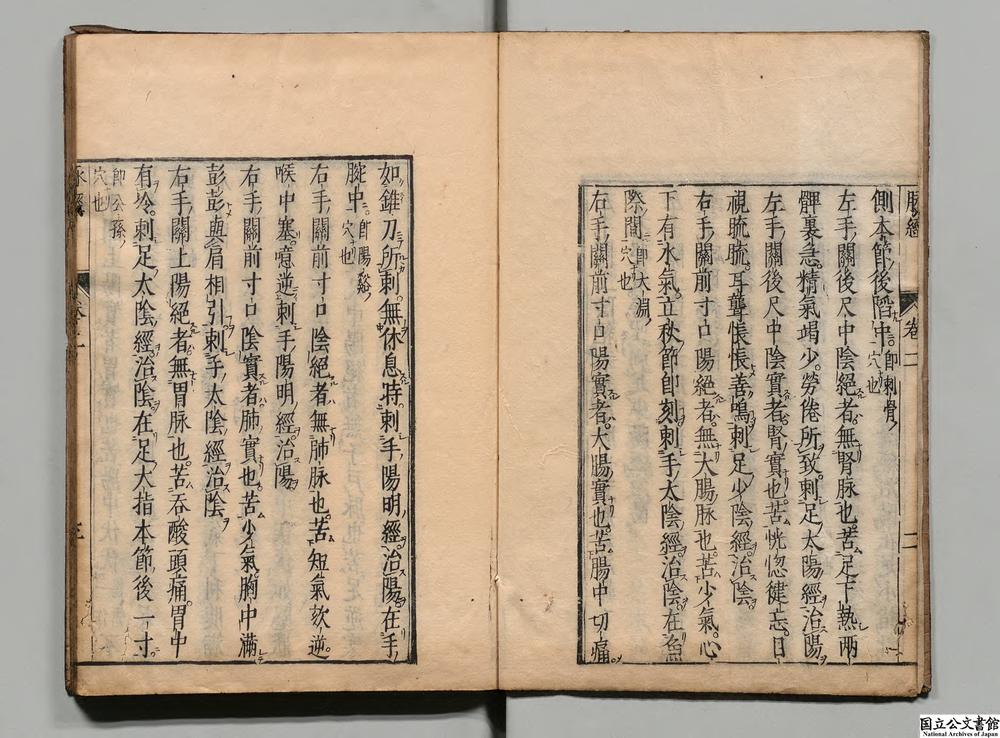 脉經 卷二 二
側本節後陷中即刺骨穴也
左手關後尺中陰絕者無腎脉也苦足下熱兩
髀裏急精氣竭少勞倦所致刺足太陽經治陽
左手關後尺中陰實者腎實也苦恍惚健忘目
視䀮䀮耳聾悵悵善鳴刺足少陰經治陰
右手關前寸口陽絕者無大腸脉也苦少氣心
下有水氣立秋節即刻刺手太陰經治陰在魚
際間即大淵穴也
右手關前寸口陽實者大腸實也苦腸中切痛
如錐刀所刺無休息時刺手陽明經治陽在手
腕中即陽谿穴也
右手關前寸口陰絕者無肺脉也苦短氣欬逆
喉中塞噫逆刺手陽明經治陽
右手關前寸口陰實者肺實也苦少氣胸中滿
彭彭與肩相引刺手太陰經治陰
右手關上陽絕者無胃脉也苦吞酸頭痛胃中
有冷刺足太陰經治陰在足大指本節後一寸
即公孫穴也
國立公文書館
National Archives of Japan